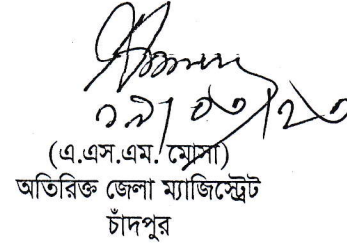 ১৯/০৩/২৩
(এ.এস.এম. মোসা)
অতিরিক্ত জেলা ম্যাজিস্ট্রেট
চাঁদপুর